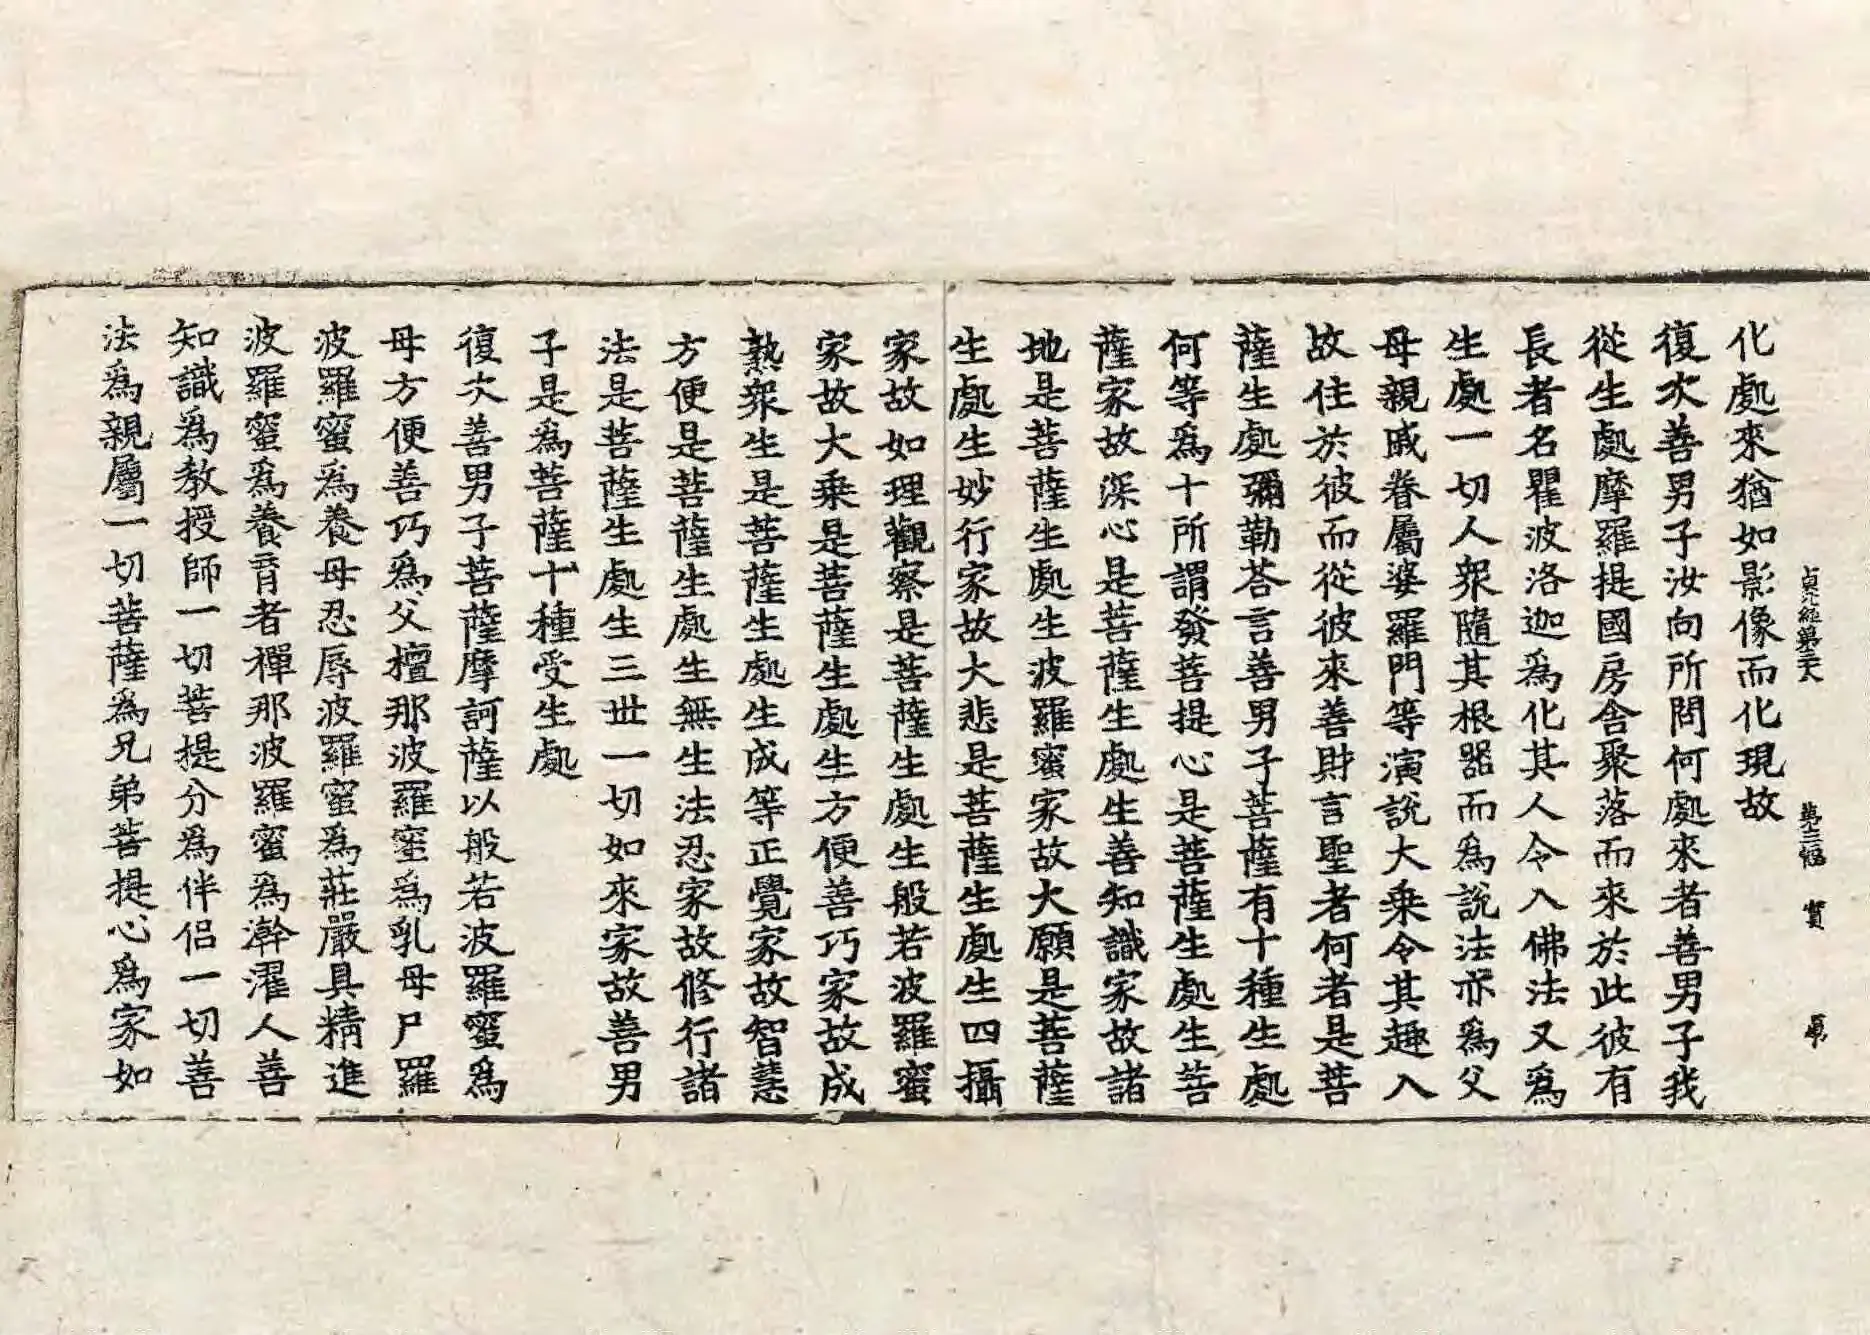 貞元經第三十六 第十三幅 寶 張
化處來猶如影像而化現故
復次善男子汝向所問何處來者善男子我
從生處摩羅提國房舍聚落而來於此彼有
長者名瞿波洛迦爲化其人令入佛法又爲
生處一切人衆隨其根器而爲說法亦爲父
母親戚眷屬婆羅門等演說大乗令其趣入
故住於彼而從彼來善財言聖者何者是菩
薩生處彌勒荅言善男子菩薩有十種生處
何等爲十所謂發菩提心是菩薩生處生菩
薩家故深心是菩薩生處生善知識家故諸
地是菩薩生處生波羅蜜家故大願是菩薩
生處生妙行家故大悲是菩薩生處生四攝
家故如理觀察是菩薩生處生般若波羅蜜
家故大乗是菩薩生處生方便善巧家故成
熟衆生是菩薩生處生成等正覺家故智慧
方便是菩薩生處生無生法忍家故修行諸
法是菩薩生處生三世一切如來家故善男
子是爲菩薩十種受生處
復次善男子菩薩摩訶薩以般若波羅蜜爲
母方便善巧爲父檀那波羅蜜爲乳母尸羅
波羅蜜爲養母忍辱波羅蜜爲莊嚴具精進
波羅蜜爲養育者禪那波羅蜜爲澣濯人善
知識爲教授師一切菩提分爲伴侣一切善
法爲親屬一切菩薩爲兄弟菩提心爲家如